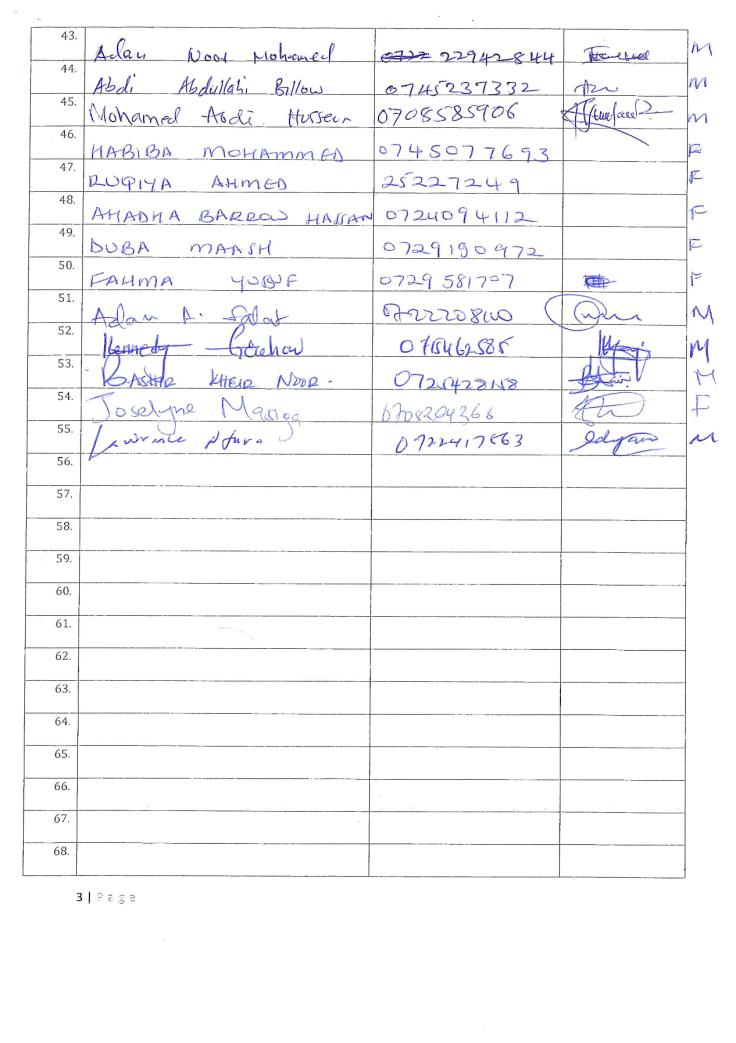 43. Adan Noor Mohamed 0722 22942844 M
44. Abdi Abdullahi Billow 0745237332 M
45. Mohamed Abdi Hussein 0708585906 M
46. HABIBA MOHAMMED 0745077693 F
47. RUQIYA AHMED 25227249 F
48. AHADHA BARROW HASSAN 0724094112 F
49. DUBA MAASH 0729190972 F
50. FAHMA YUSUF 0729581707 F
51. Adan A. Salat M
52. Kennedy M
53. BASHIR KHEIR NOOR. M
54. Joselyne 0708204366 F
55. 0722417863 M
56.
57.
58.
59.
60.
61.
62.
63.
64.
65.
66.
67.
68.
3 | Page